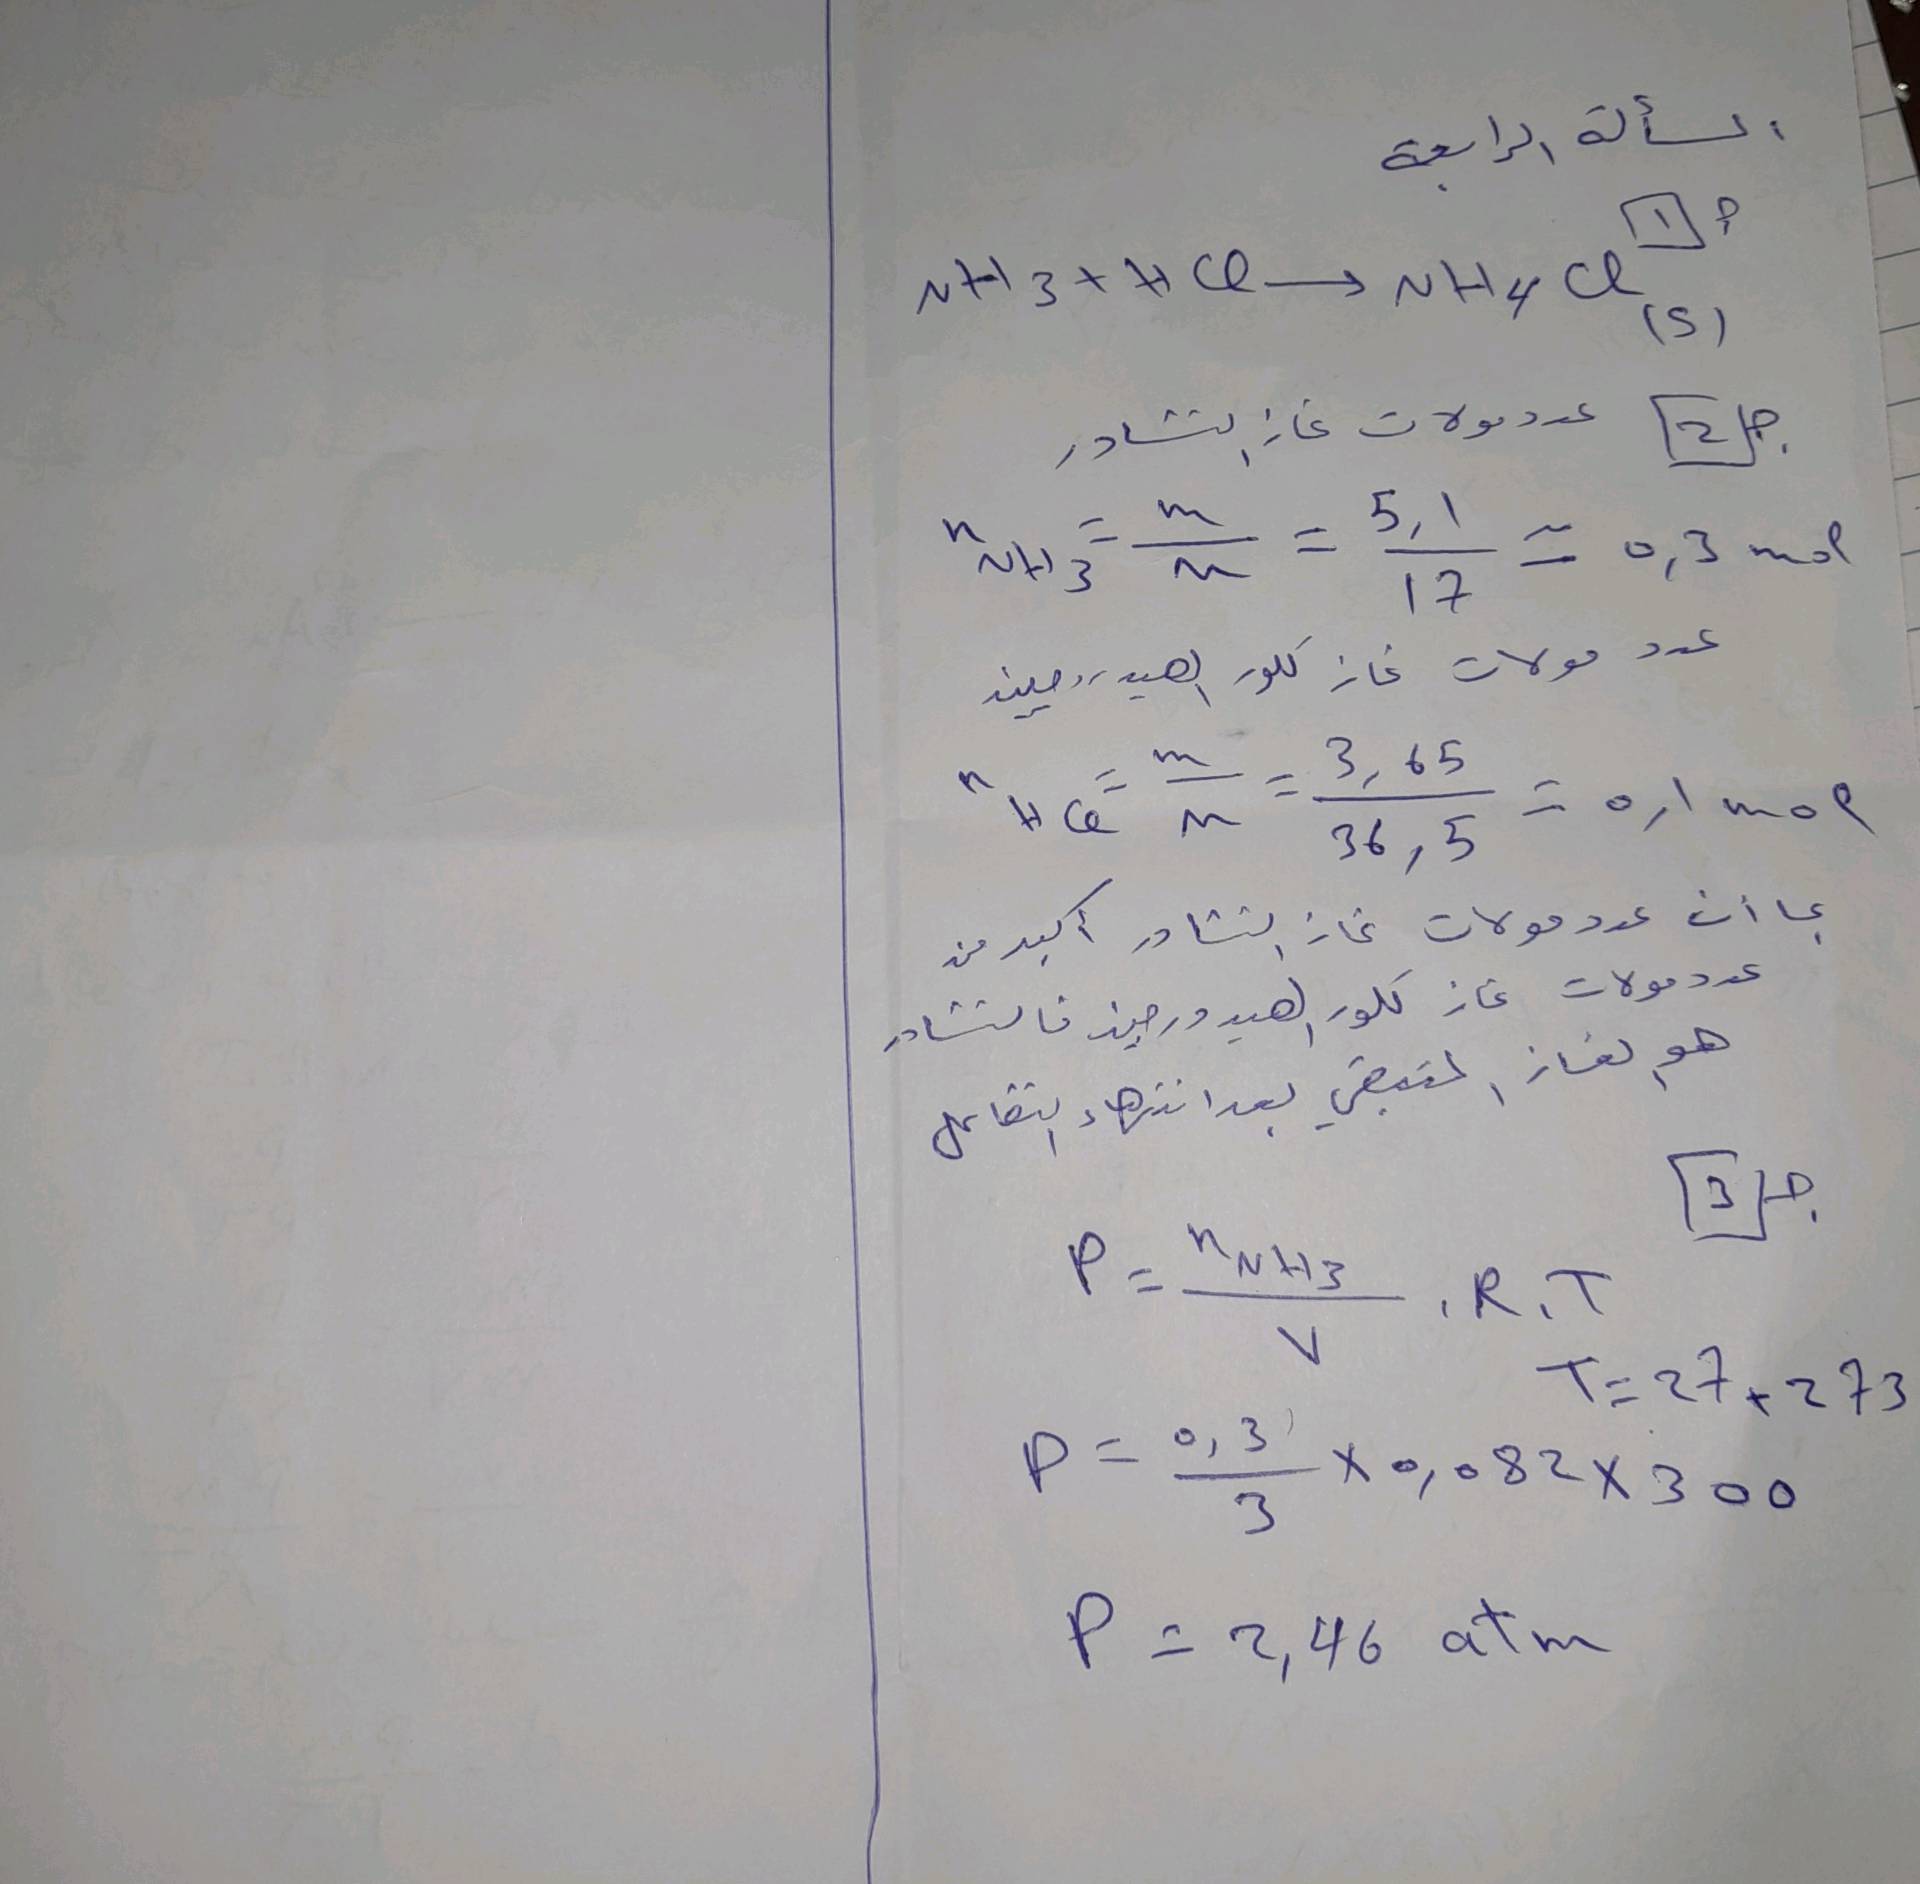 المسألة الرابعة
ج 1
NH3 + HCl → NH4Cl(s)
ج 2 عدد مولات غاز النشادر
nNH3 = m/M = 5,1/17 = 0,3 mol
عدد مولات غاز كلور الهيدروجين
nHCl = m/M = 3,65/36,5 = 0,1 mol
بما أن عدد مولات غاز النشادر أكبر من
عدد مولات غاز كلور الهيدروجين فالنشادر
هو الغاز المتبقي بعد انتهاء التفاعل
ج 3
P = nNH3/V . R . T
T = 27 + 273
P = 0,3/3 × 0,082 × 300
P = 2,46 atm